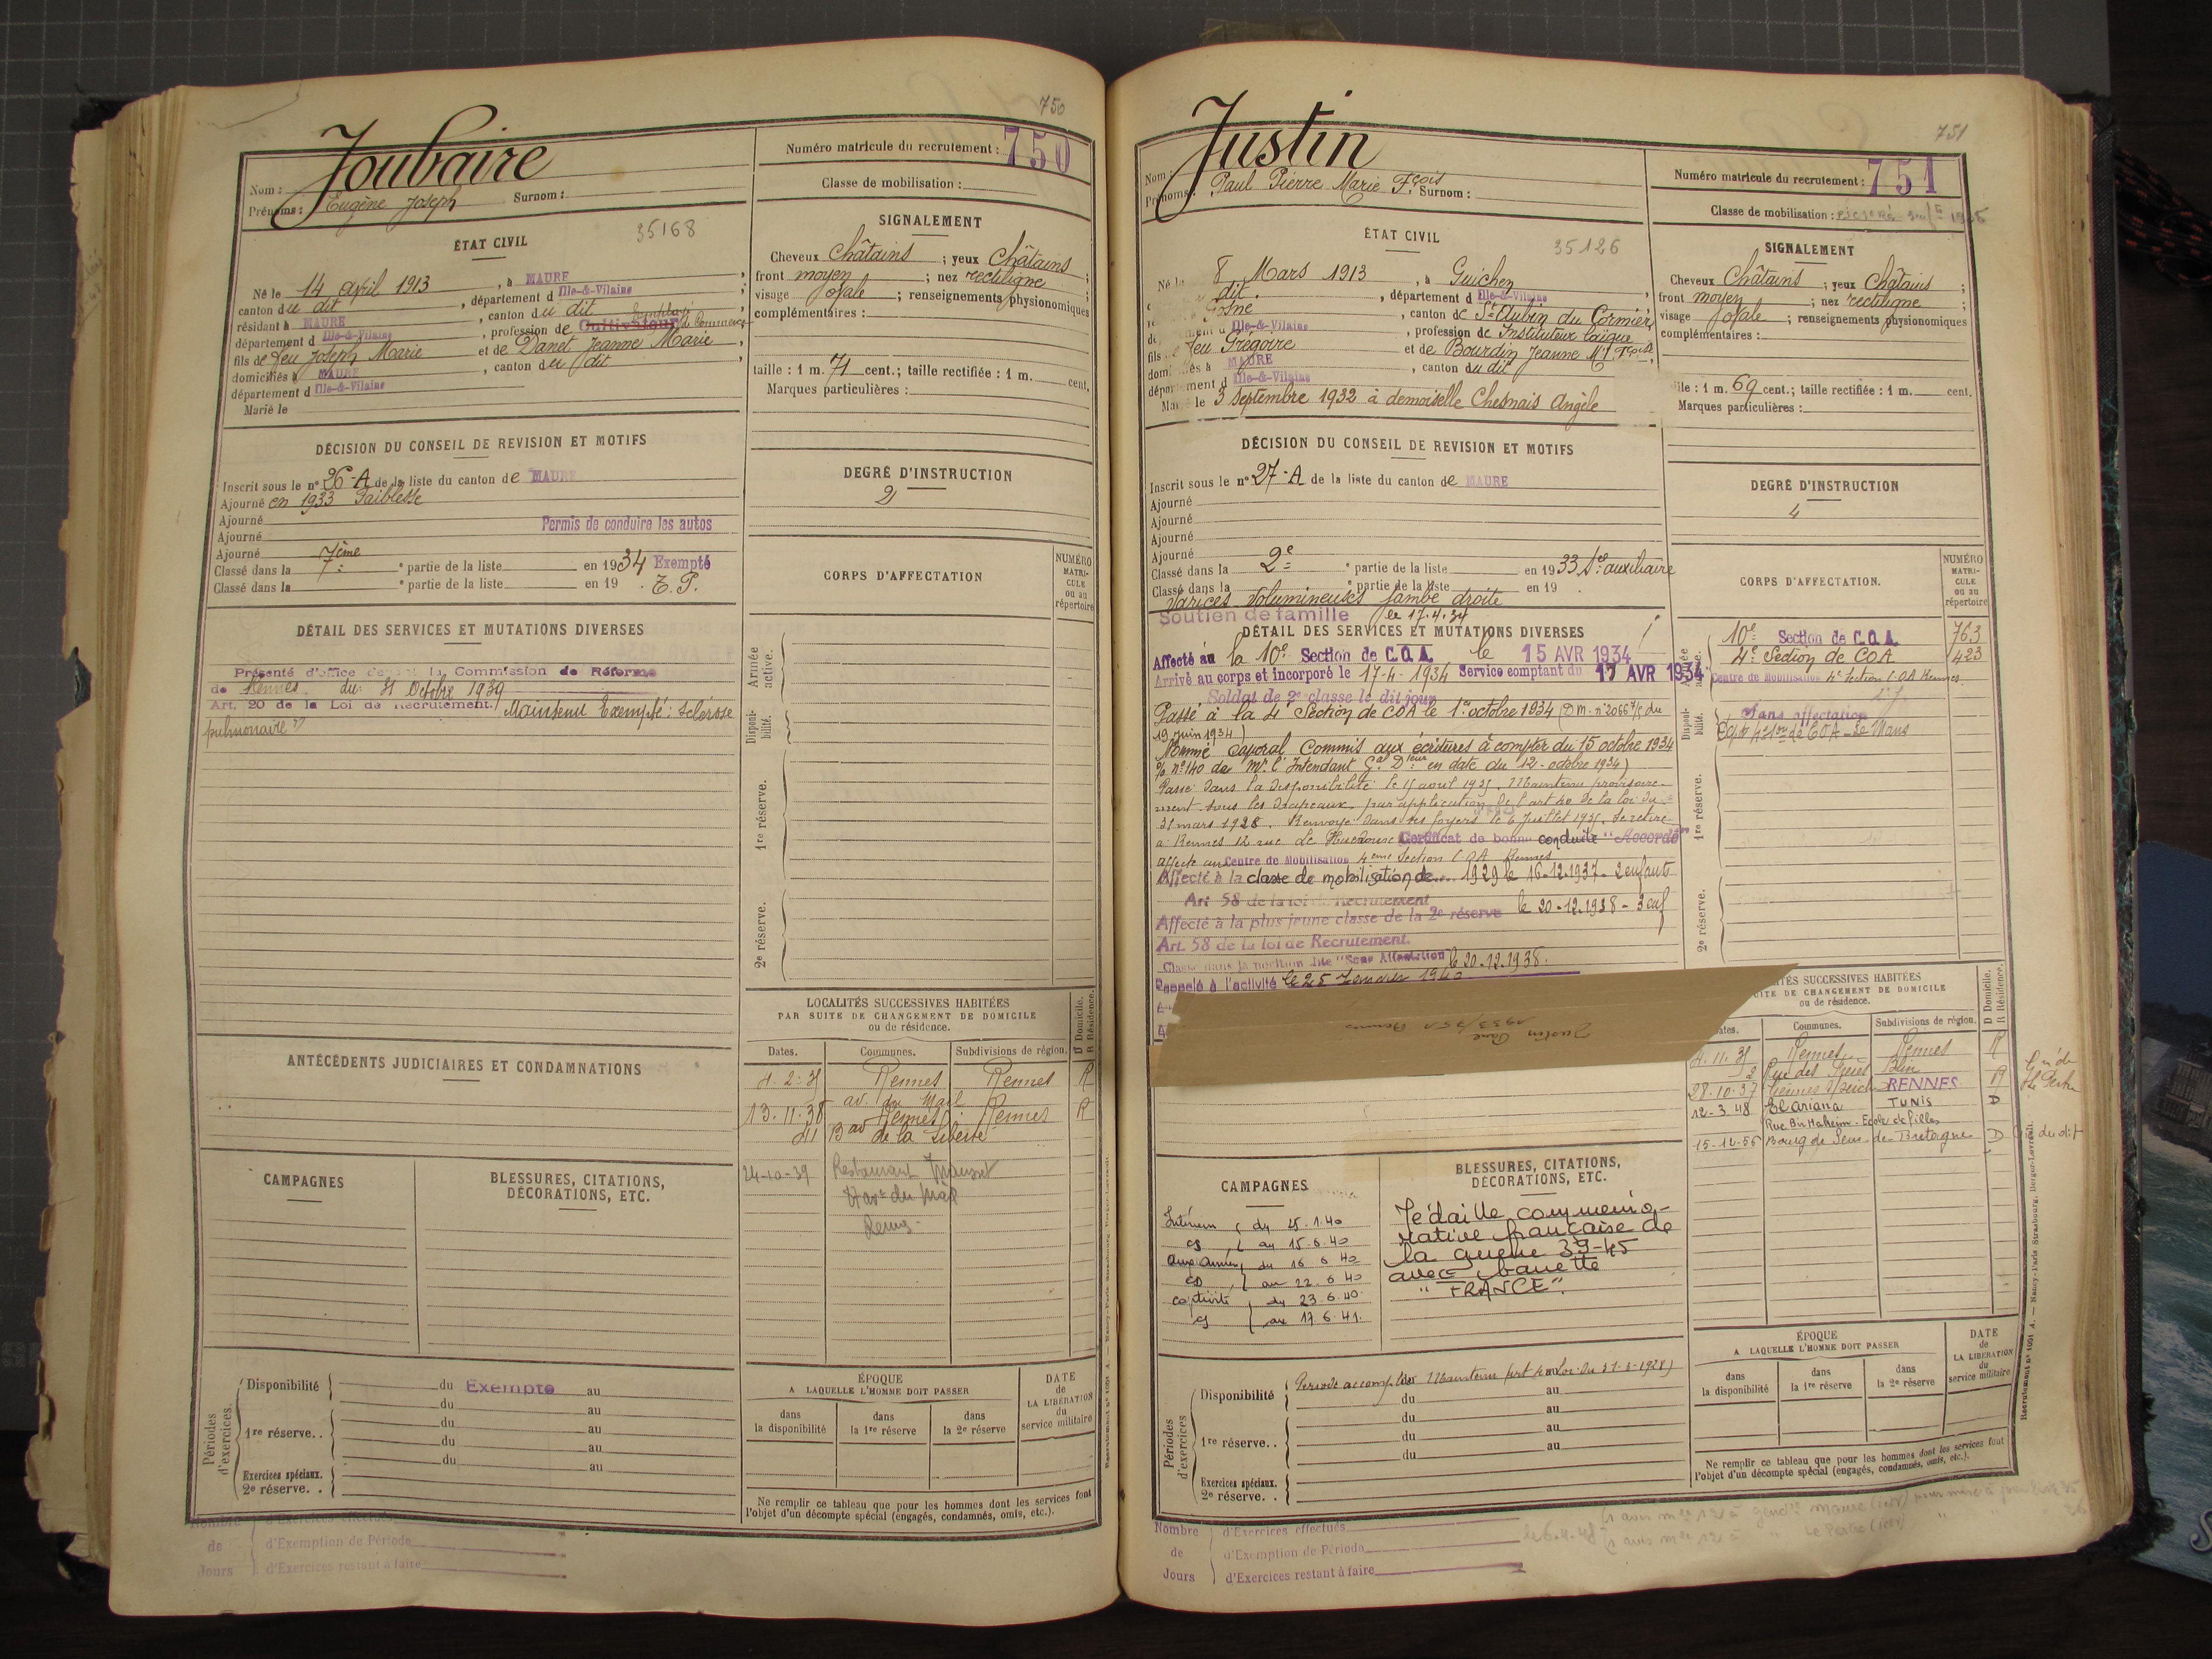 750
Joubaire
Nom :
Prénoms : Eugène Joseph Surnom :
Numéro matricule du recrutement : 750
Classe de mobilisation :
ÉTAT CIVIL
35168
Né le 14 avril 1913, à MAURE
canton du dit, département d Ille-&-Vilaine
résidant à MAURE, canton du dit
département d Ille-&-Vilaine, profession de Cultivateur employé de Commerce
fils de feu Joseph Marie et de Danet Jeanne Marie
domiciliés à MAURE, canton du dit
département d Ille-&-Vilaine
Marié le
SIGNALEMENT
Cheveux Châtains ; yeux Châtains ;
front moyen ; nez rectiligne ;
visage ovale ; renseignements physionomiques
complémentaires :
taille : 1 m. 71 cent.; taille rectifiée : 1 m. cent.
Marques particulières :
DÉCISION DU CONSEIL DE REVISION ET MOTIFS
Inscrit sous le n° 26-A de la liste du canton de MAURE
Ajourné en 1933 Faiblesse
Ajourné
Permis de conduire les autos
Ajourné
Ajourné 7ème
Classé dans la 7e partie de la liste en 1934 Exempté
Classé dans la e partie de la liste en 19 . T. P.
DEGRÉ D'INSTRUCTION
2
CORPS D'AFFECTATION
NUMÉRO MATRICULE ou au répertoire
DÉTAIL DES SERVICES ET MUTATIONS DIVERSES
Présenté d'office devant la Commission de Réforme
de Rennes du 31 Octobre 1939
Art. 20 de la Loi de Recrutement. Maintenu Exempté : sclérose
pulmonaire
Armée active.
Disponibilité.
1re réserve.
2e réserve.
ANTÉCÉDENTS JUDICIAIRES ET CONDAMNATIONS
LOCALITÉS SUCCESSIVES HABITÉES
PAR SUITE DE CHANGEMENT DE DOMICILE
ou de résidence.
D Domicile. R Résidence.
Dates. Communes. Subdivisions de région.
Rennes Rennes R
av. du Mail
13.11.38 Rennes Rennes R
de la Liberté
24-10-39 Restaurant
CAMPAGNES
BLESSURES, CITATIONS,
DÉCORATIONS, ETC.
Périodes d'exercices.
Disponibilité du Exempté au
du au
1re réserve.. du au
du au
du au
Exercices spéciaux.
2e réserve. .
ÉPOQUE
A LAQUELLE L'HOMME DOIT PASSER
dans la disponibilité
dans la 1re réserve
dans la 2e réserve
DATE de LA LIBÉRATION du service militaire
Ne remplir ce tableau que pour les hommes dont les services font
l'objet d'un décompte spécial (engagés, condamnés, omis, etc.).
Nombre d'Exercices effectués
de d'Exemption de Période
Jours d'Exercices restant à faire
751
Justin
Nom :
Prénoms : Paul Pierre Marie Fçois Surnom :
Numéro matricule du recrutement : 751
Classe de mobilisation :
ÉTAT CIVIL
35126
Né le 8 Mars 1913, à Guichen
dit, département d Ille-&-Vilaine
Gosné, canton de St Aubin du Cormier
Ille-&-Vilaine, profession de Instituteur laïque
fils de feu Grégoire et de Bourdin Jeanne Mie Fçoise
MAURE, canton du dit
département d Ille-&-Vilaine
le 3 septembre 1932 à demoiselle Chesnais Angèle
SIGNALEMENT
Cheveux Châtains ; yeux Châtains ;
front moyen ; nez rectiligne ;
visage ovale ; renseignements physionomiques
complémentaires :
taille : 1 m. 69 cent.; taille rectifiée : 1 m. cent.
Marques particulières :
DÉCISION DU CONSEIL DE REVISION ET MOTIFS
Inscrit sous le n° 27-A de la liste du canton de MAURE
Ajourné
Ajourné
Ajourné
Ajourné
Classé dans la 2e partie de la liste en 1933 Sce auxiliaire
Classé dans la e partie de la liste en 19
Varices volumineuses jambe droite
Soutien de famille le 17.4.34
DEGRÉ D'INSTRUCTION
4
CORPS D'AFFECTATION.
NUMÉRO MATRICULE ou au répertoire
10e Section de C.O.A. 763
4e Section de COA 423
Centre de Mobilisation 4e Section COA Rennes
Sans affectation
DÉTAIL DES SERVICES ET MUTATIONS DIVERSES
Affecté au la 10e Section de C.O.A. le 15 AVR 1934
Arrivé au corps et incorporé le 17-4-1934 Service comptant du 17 AVR 1934
Soldat de 2e classe le dit jour
Passé à la 4e Section de COA le 1er octobre 1934 (DM. n° 2066 7/5 du
19 juin 1934)
Nommé Caporal Commis aux écritures à compter du 15 octobre 1934
n° 140 de Mr l'Intendant Gal Dteur en date du 12-octobre 1934)
Passé dans la disponibilité le 15 avril 1935. Maintenu provisoire-
ment sous les drapeaux par application de l'art 40 de la loi du
31 mars 1928. Renvoyé dans ses foyers le 6 juillet 1935. Se retire
à Rennes 12 rue Certificat de bonne conduite "Accordé"
affecté au Centre de Mobilisation 4ème Section COA Rennes
Affecté à la classe de mobilisation de 1929 le 16-12-1937 - 2 enfants
Art 58 de la loi de Recrutement
Affecté à la plus jeune classe de la 2e réserve le 20-12-1938 - 3 enf
Art. 58 de la loi de Recrutement.
Classé dans la position dite "Sans Affectation" le 20.12.1938.
Rappelé à l'activité le 25 Janvier 1940
Justin
Paul
1933/751 Rennes
Armée active.
Disponibilité.
1re réserve.
2e réserve.
LOCALITÉS SUCCESSIVES HABITÉES
SUITE DE CHANGEMENT DE DOMICILE
ou de résidence.
D Domicile. R Résidence.
Dates. Communes. Subdivisions de région.
Rennes Rennes R
28.10.37 RENNES R
12-3-48 El Ariana TUNIS D
Ecole de filles
Bourg de Sens-de-Bretagne D
CAMPAGNES
Intérieur du 25.1.40
CS au 15.6.40
Aux Armées du 16 6 40
CD au 22.6.40
captivité du 23.6.40
CS au 17.6.41.
BLESSURES, CITATIONS,
DÉCORATIONS, ETC.
Médaille commémo-
rative française de
la guerre 39-45
avec barrette
"FRANCE".
Périodes d'exercices
Disponibilité Période accomplie Maintenu (art 40 Loi du 31-3-1928)
du au
du au
1re réserve.. du au
du au
Exercices spéciaux.
2e réserve. .
ÉPOQUE
A LAQUELLE L'HOMME DOIT PASSER
dans la disponibilité
dans la 1re réserve
dans la 2e réserve
DATE de LA LIBÉRATION du service militaire
Ne remplir ce tableau que pour les hommes dont les services font
l'objet d'un décompte spécial (engagés, condamnés, omis, etc.).
Nombre d'Exercices effectués
de d'Exemption de Période
Jours d'Exercices restant à faire